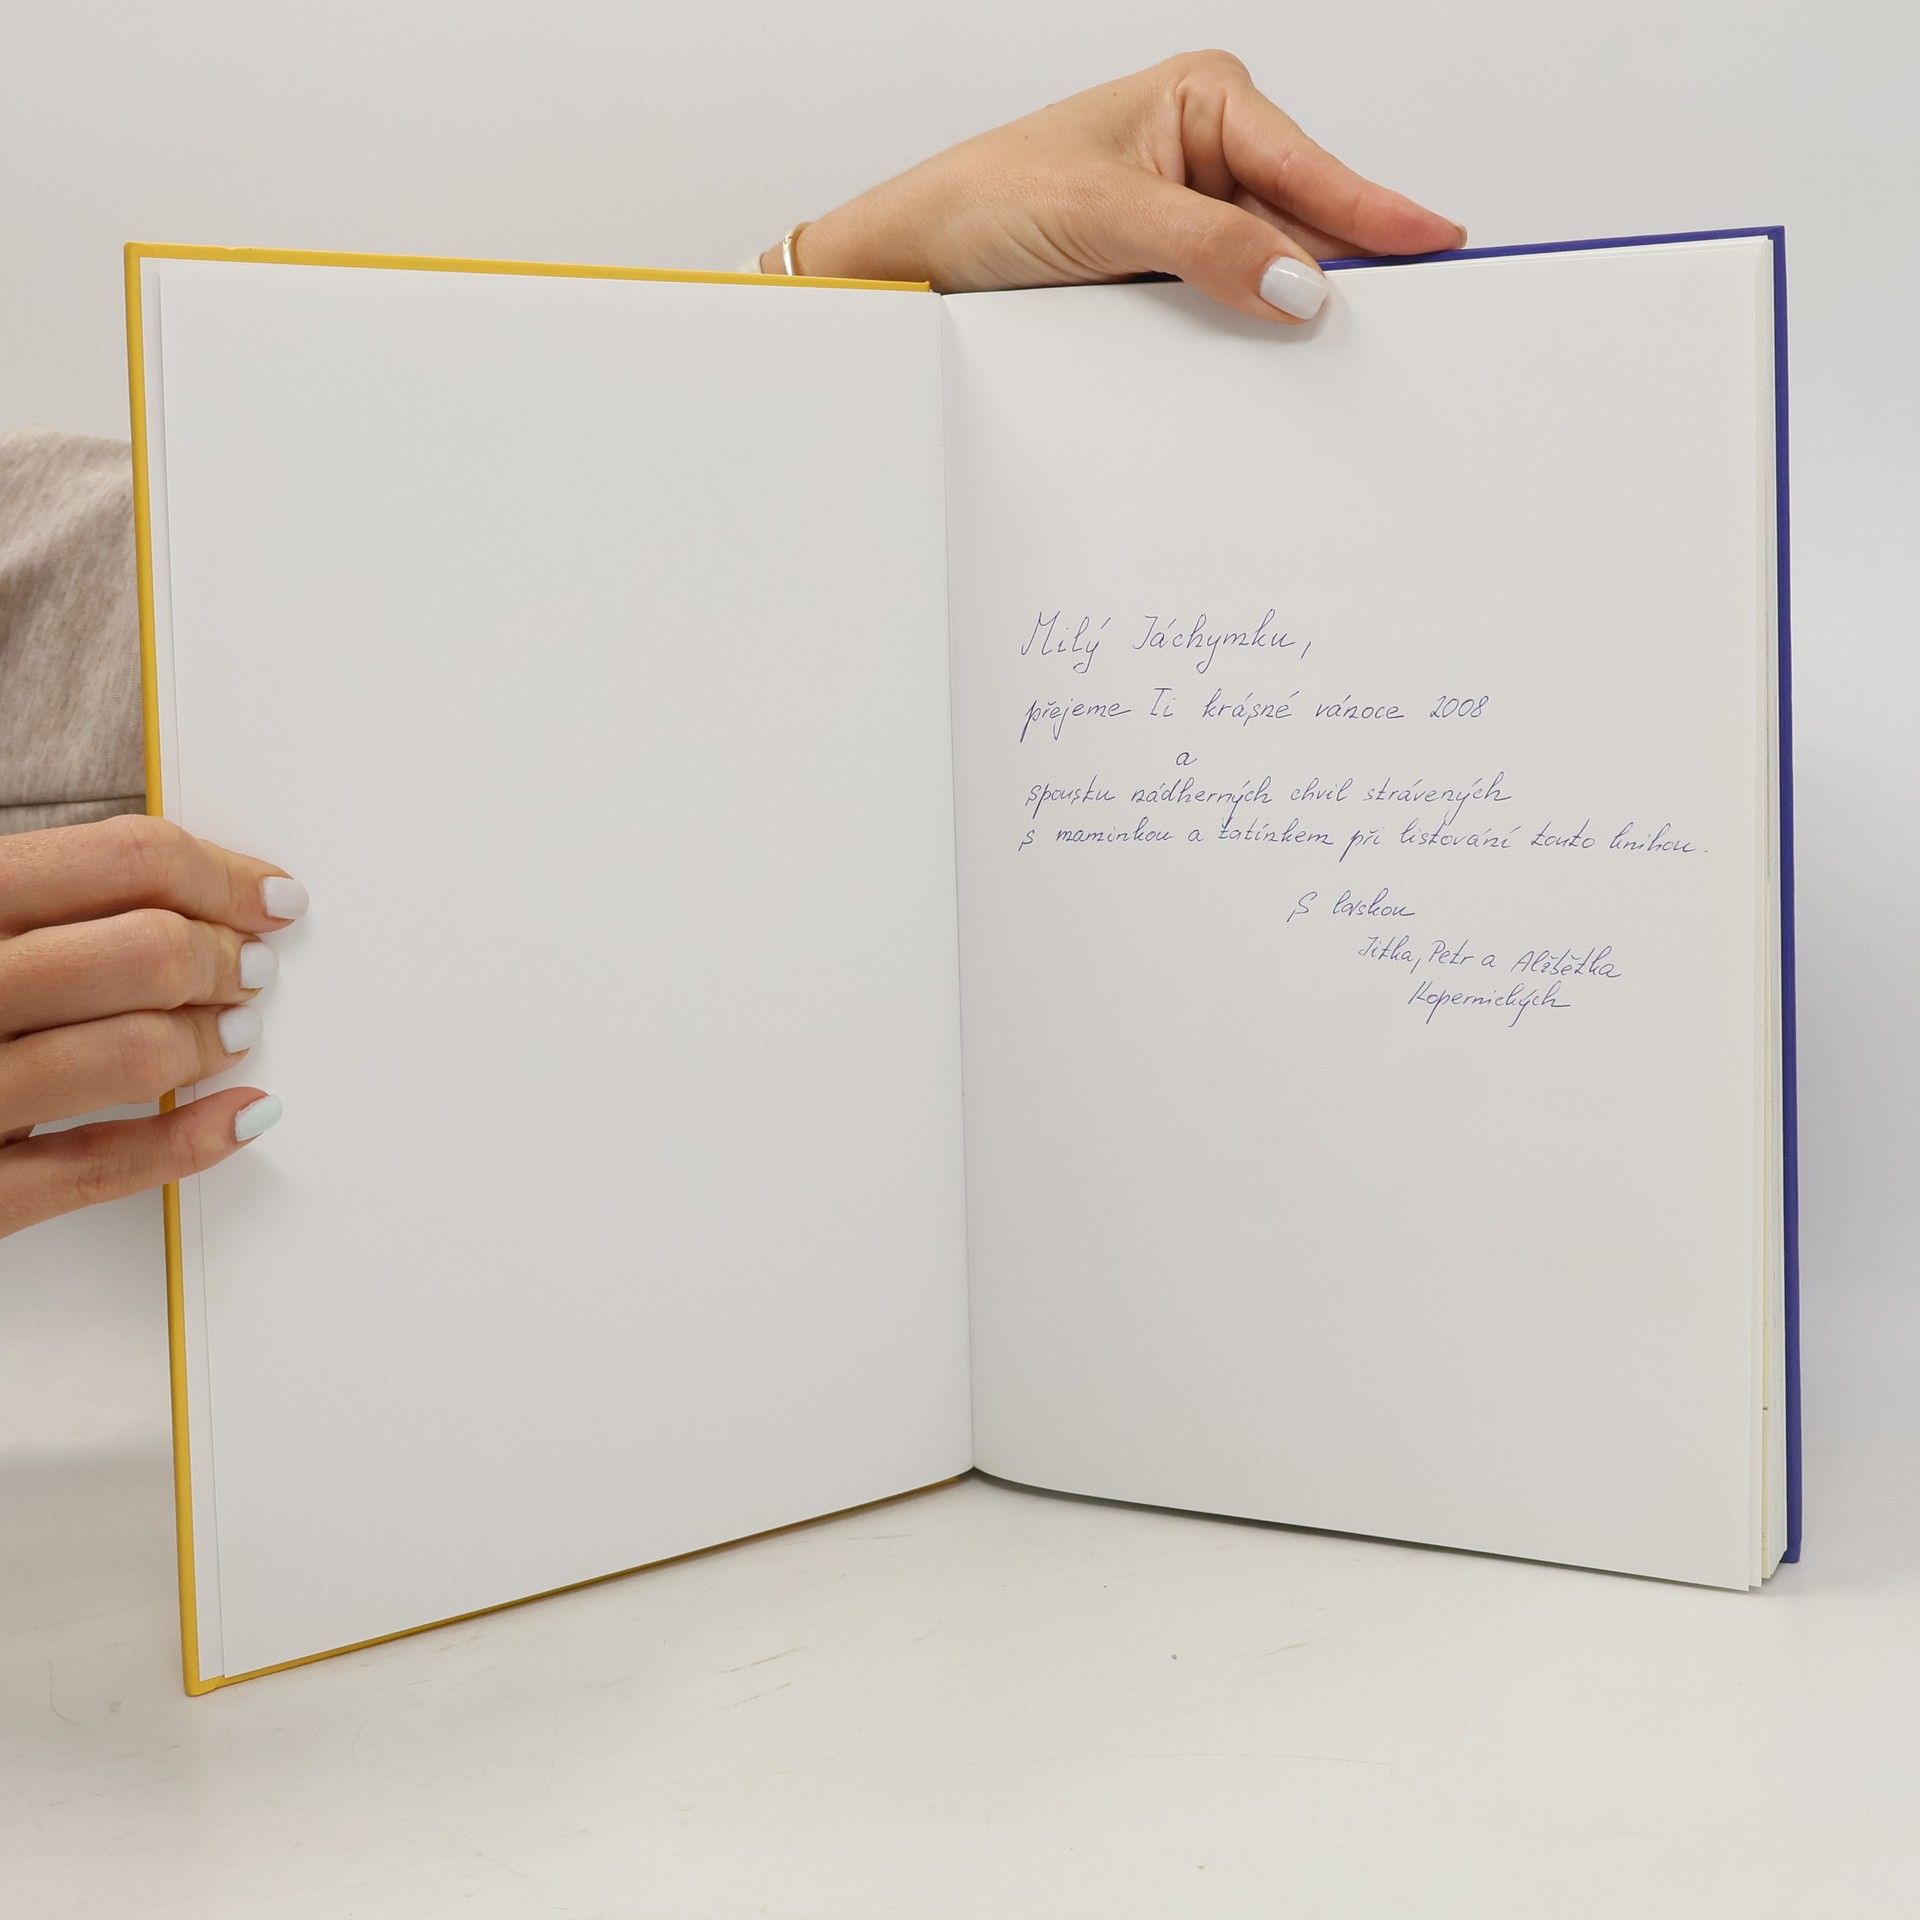 Milý Jáchymku,
přejeme Ti krásné vánoce 2008
a
spoustu nádherných chvil strávených
s maminkou a tatínkem při listování touto knihou.
S láskou
Jitka, Petr a Alžbětka
Kopernických